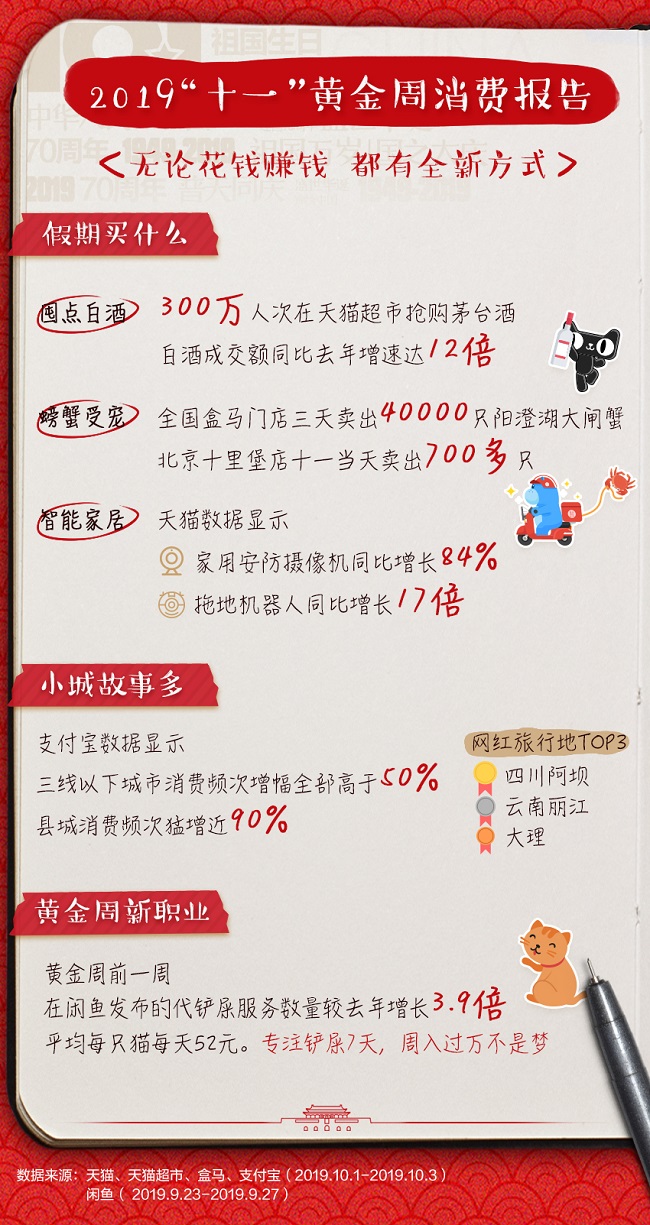 祖国生日
2019“十一”黄金周消费报告
70周年 1949-2019
<无论花钱赚钱 都有全新方式>
2019 70周年 普天同庆 1949-2019
假期买什么
囤点白酒 300万人次在天猫超市抢购茅台酒
白酒成交额同比去年增速达12倍
螃蟹受宠 全国盒马门店三天卖出40000只阳澄湖大闸蟹
北京十里堡店十一当天卖出700多只
智能家居 天猫数据显示
家用安防摄像机同比增长84%
拖地机器人同比增长17倍
小城故事多
支付宝数据显示
三线以下城市消费频次增幅全部高于50%
县城消费频次猛增近90%
网红旅行地TOP3
四川阿坝
云南丽江
大理
黄金周新职业
黄金周前一周
在闲鱼发布的代铲屎服务数量较去年增长3.9倍
平均每只猫每天52元。专注铲屎7天，周入过万不是梦
数据来源：天猫、天猫超市、盒马、支付宝（2019.10.1-2019.10.3）
闲鱼（2019.9.23-2019.9.27）